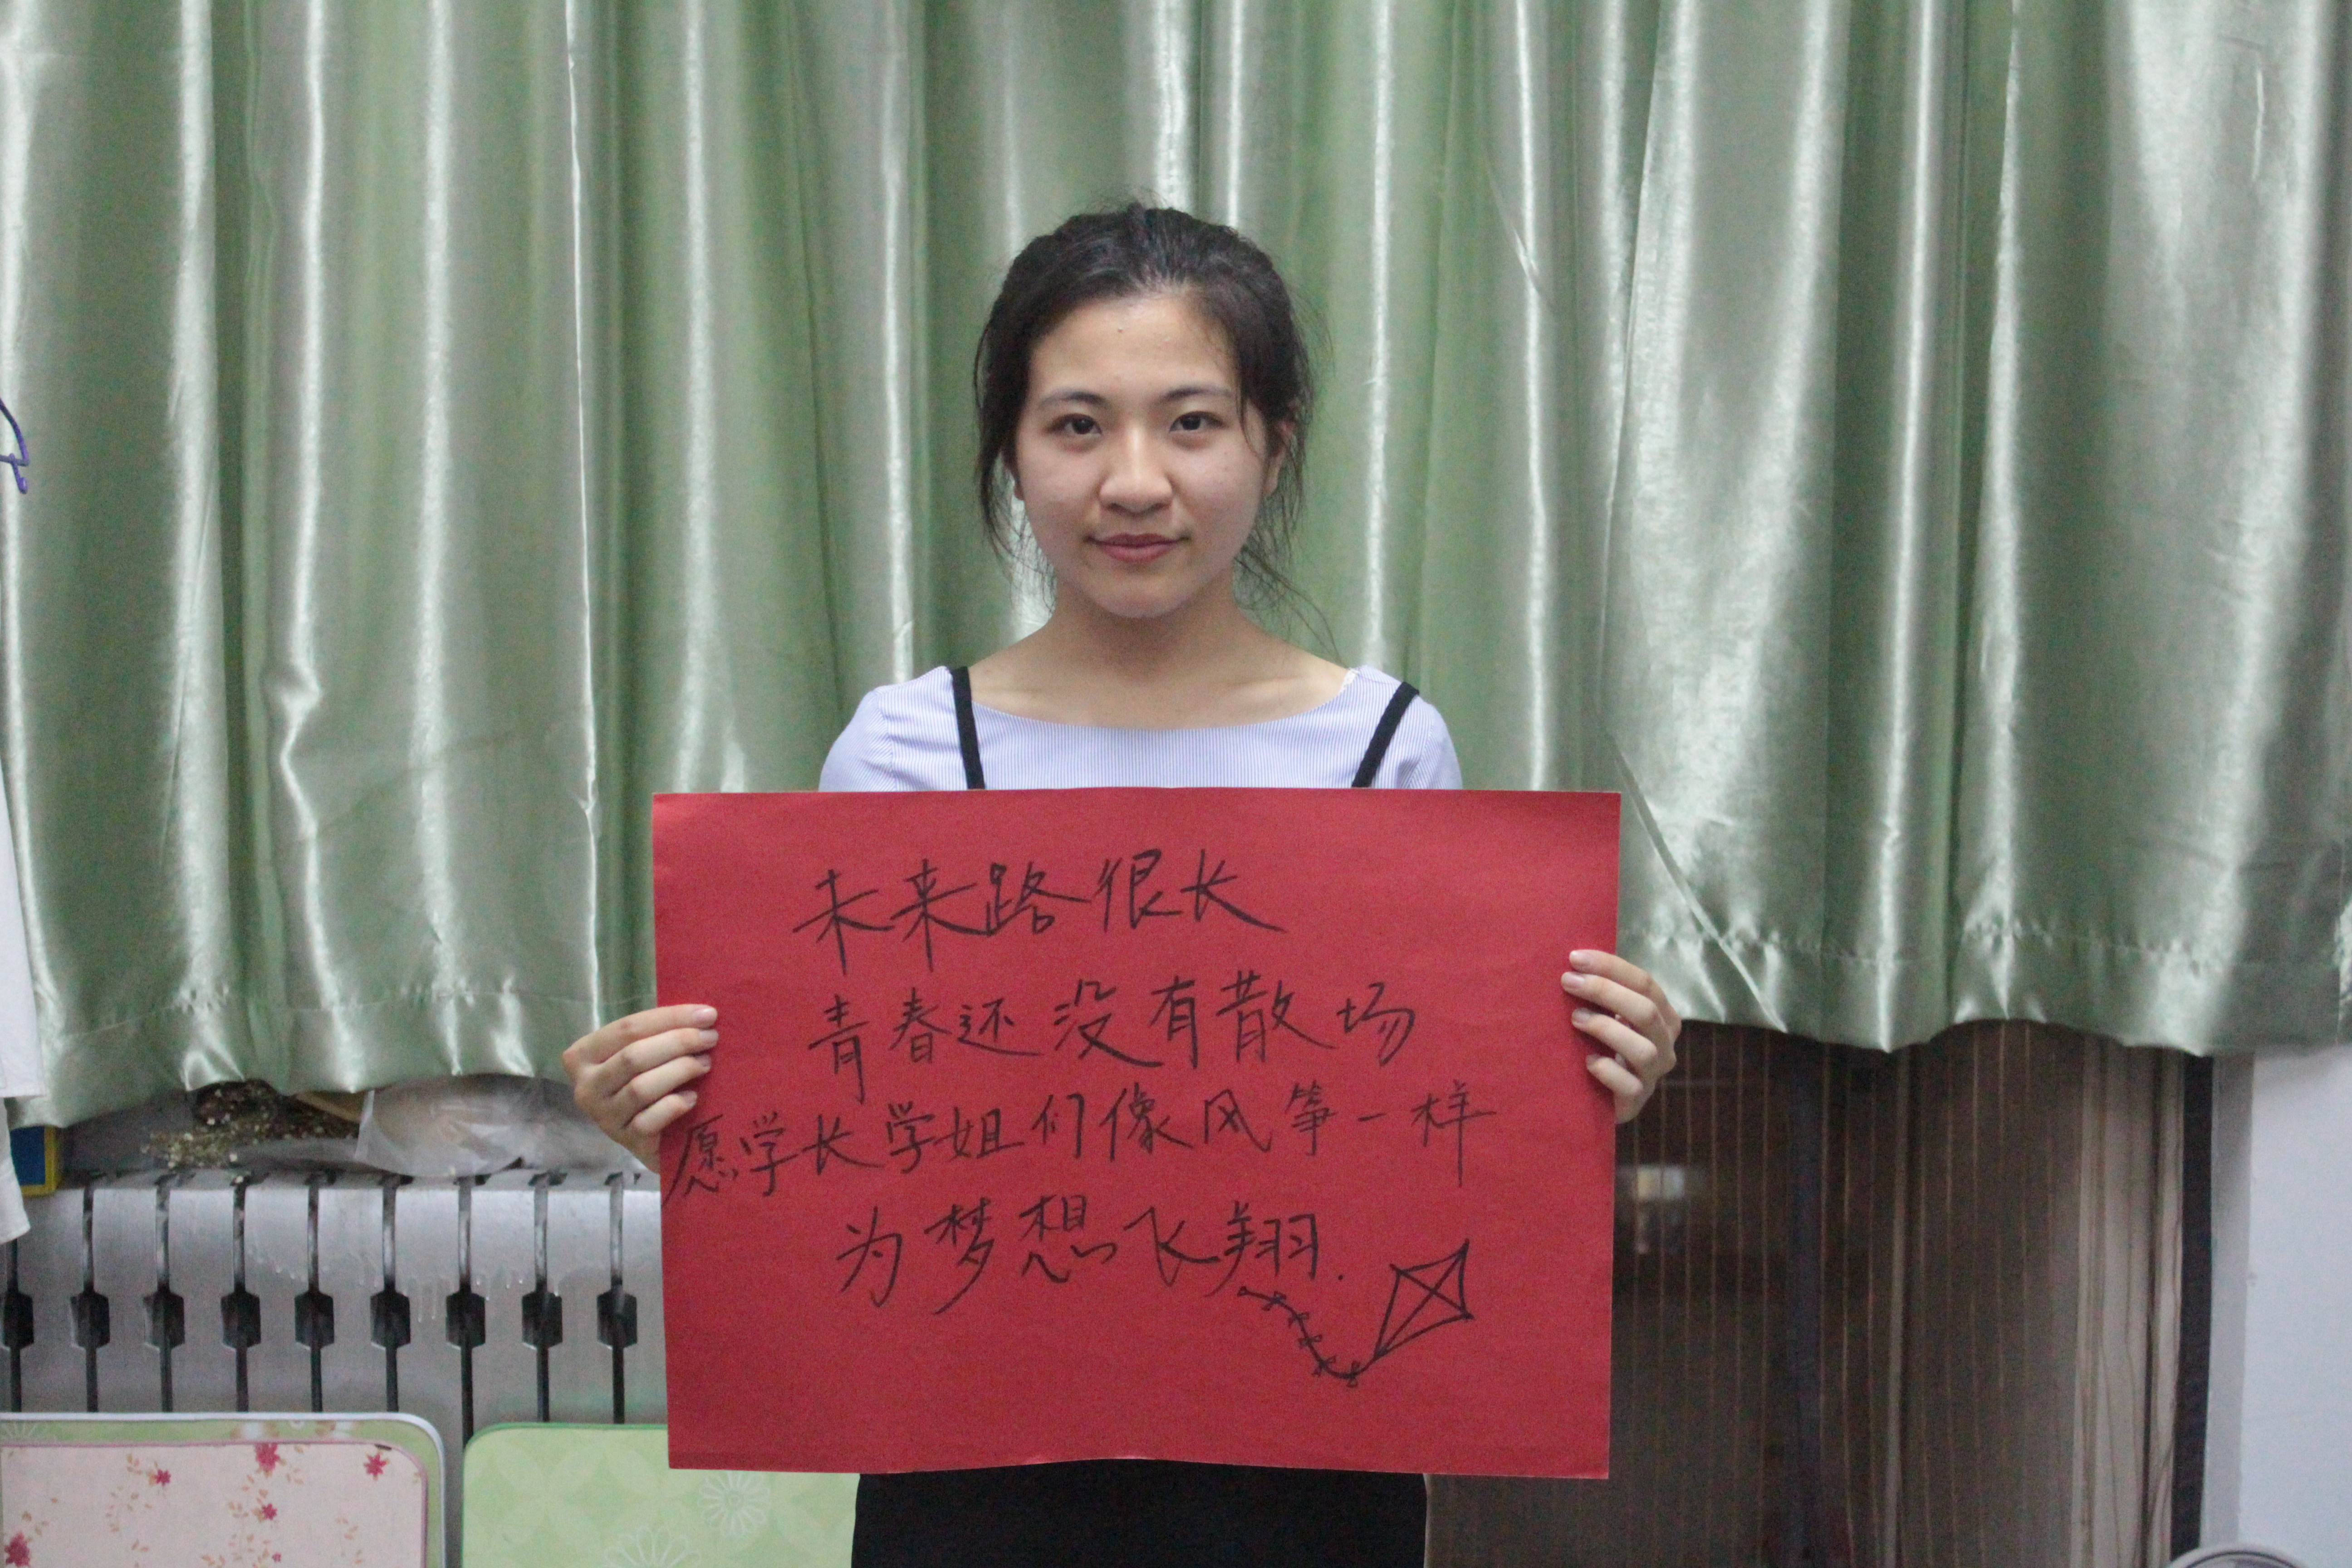 未来路很长
青春还没有散场
愿学长学姐们像风筝一样
为梦想飞翔.